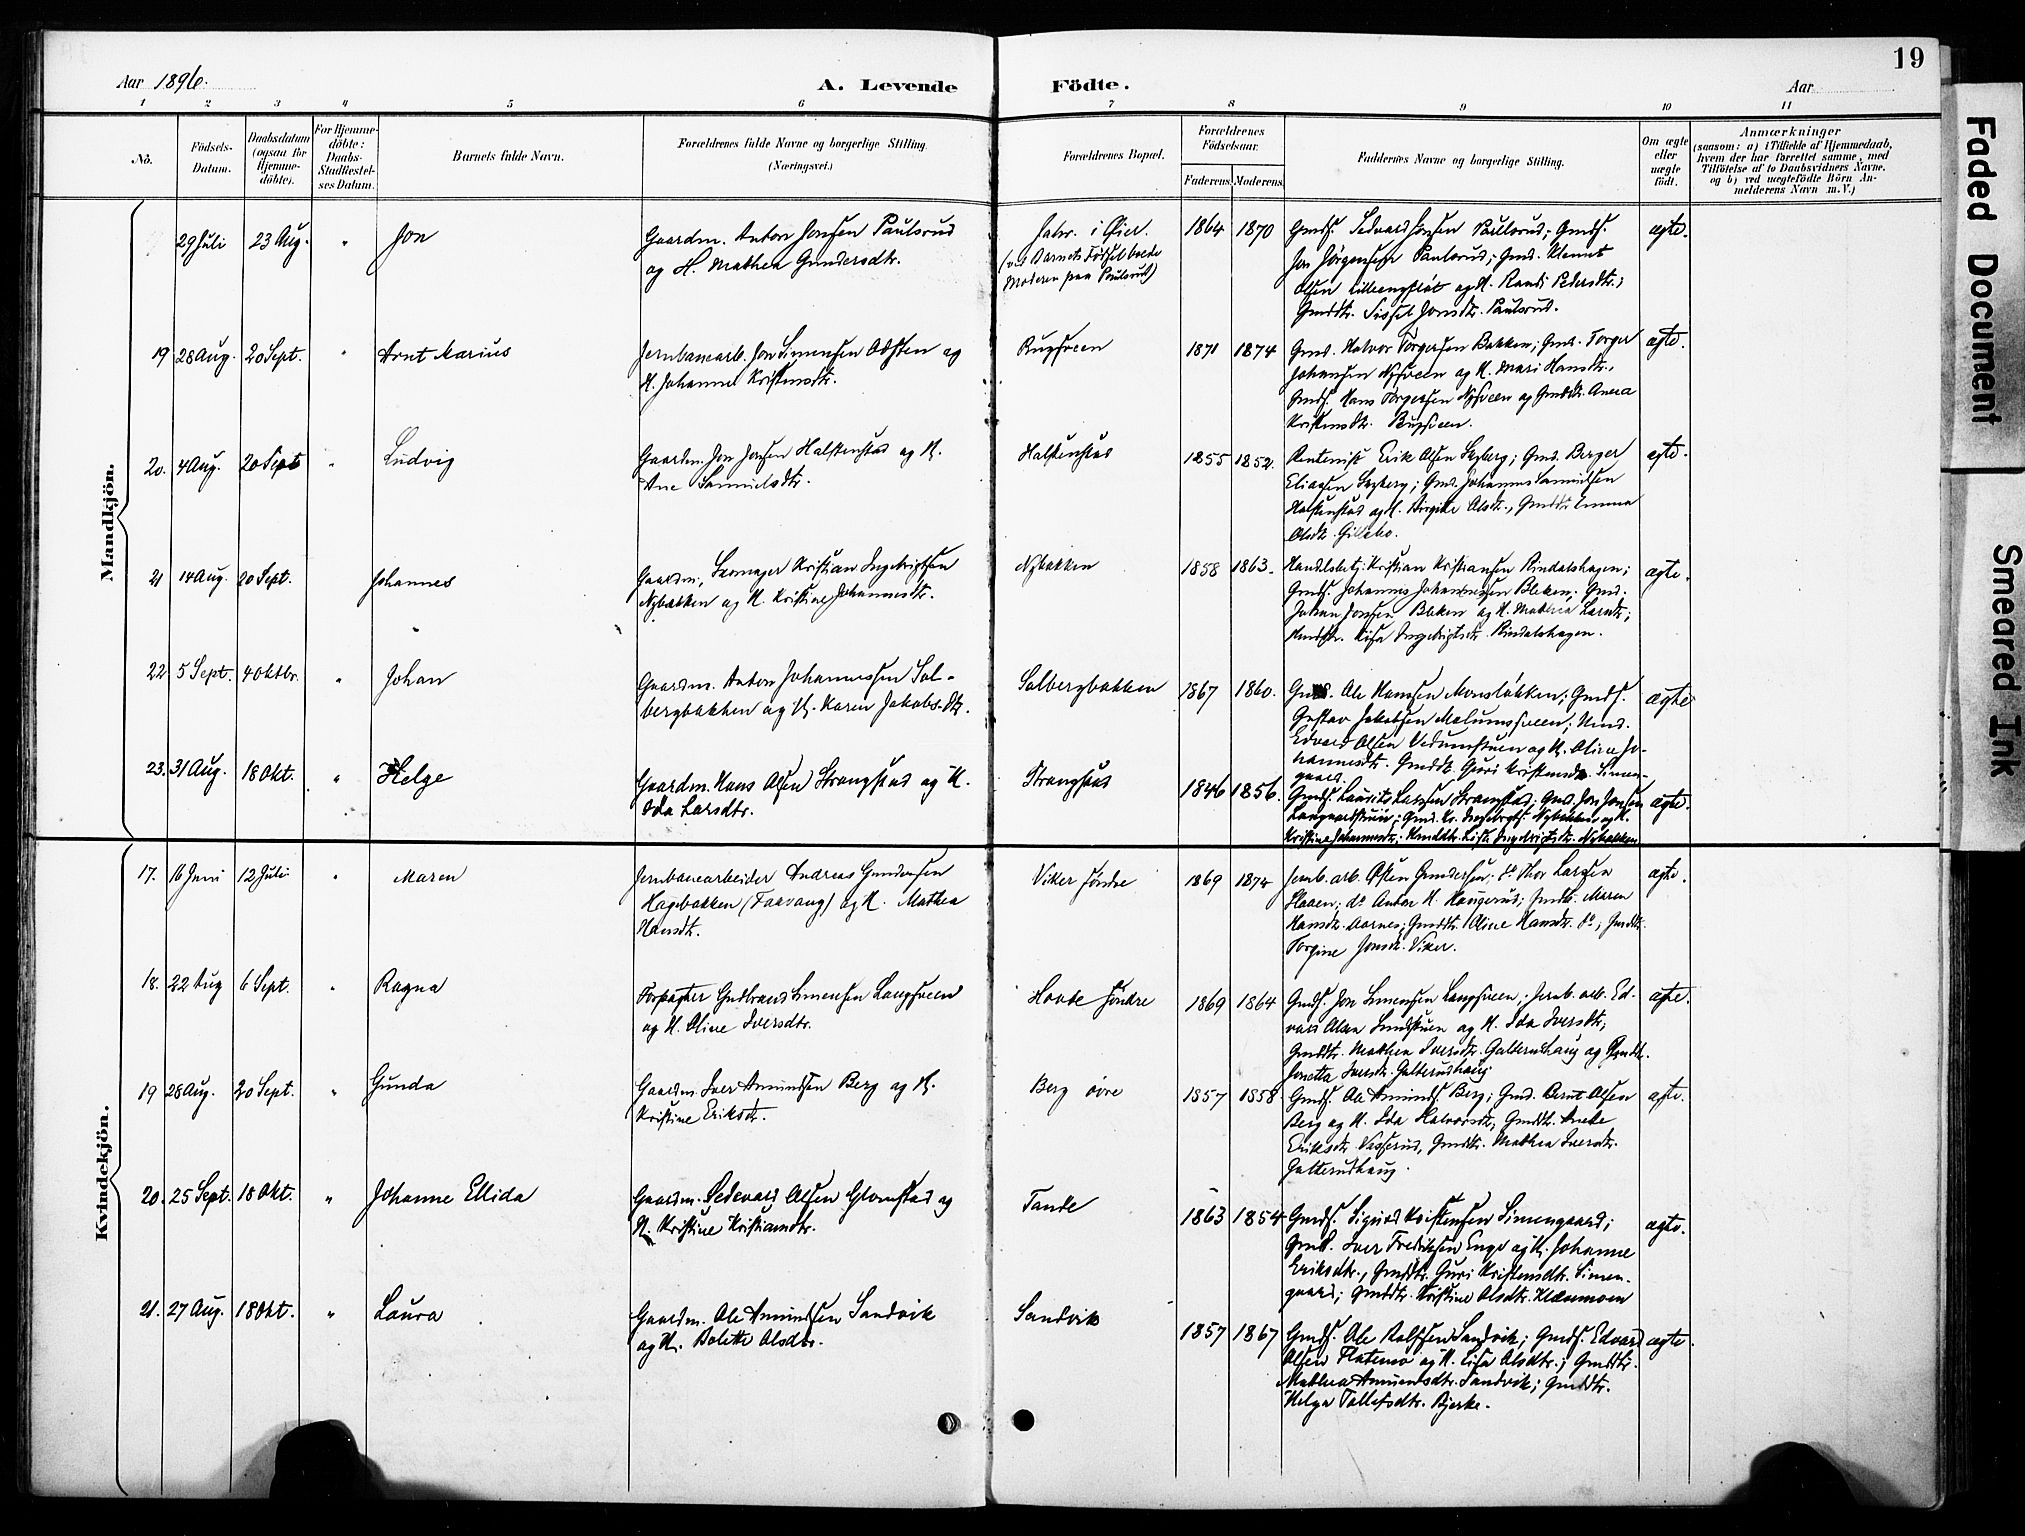 19
Aar 1896.
A. Levende Födte.
Aar
1 2 3 4 5 6 7 8 9 10 11
No.
Födsels-Datum.
Daabsdatum (ogsaa for Hjemme-döbte).
For Hjemme-döbte: Daabs-Stadfæstel-ses Datum.
Barnets fulde Navn.
Forældrenes fulde Navne og borgerlige Stilling. (Næringsvei.)
Forældrenes Bopæl.
Forældrenes Födselsaar.
Faderens. Moderens.
Faddernes Navne og borgerlige Stilling.
Om ægte eller uægte födt.
Anmærkninger
(saasom: a) i Tilfælde af Hjemmedaab,
hvem der har forrettet samme, med
Tilföielse af to Daabsvidners Navne.
og b) ved uægtefödte Börn An-
melderens Navn m. V.)
Mandkjön.
29 Juli 23 Aug. " Jon
Gaardm. Anton Jonsen Paulsrud
og H. Mathea Gundersdtr.
i Øier.
(ved Barnets Fødsel boede
Moderen paa Paulsrud)
1864 1870
Gmds. Sedvard Jonsen Paulsrud; Gmds.
Jon Jørgensen Paulsrud; Gmd.
Olsen og H. Randi Pedersdtr.;
Gmddtr. Sissel Jonsdtr. Paulsrud.
ægte.
19 28 Aug. 20 Sept. " Arnt Marius
Jernbanearb. Jon Simensen Odsten og
H. Johanne Kristensdtr.
1871 1874
Gmd. Halvor Torgersen Bakken; Gmd. Torger
Johansen Nysveen og H. Mari Hansdtr.,
Gmds. Hans Torgersen Nysveen og Gmddtr. Anna
Kristensdtr.
ægte.
20. 4 Aug. 20 Sept " Ludvig
Gaardm. Jon Jonsen Halstenstad og H.
Ane Samuelsdtr.
Halstenstad
1855 1852.
Erik Olsen Skyberg; Gmd. Berger
Eliasen Skyberg; Gmd. Johannes Samuelsen
Halstenstad og H. Birgitte Olsdtr., Gmddtr. Emma
Olsdtr. Gillebo.
ægte.
21 14 Aug. 20 Sept. Johannes
"
Gaardm., Skomager Kristian Ingebrigtsen
Nybakken og H. Kristine Johannesdtr.
Nybakken
1858 1863.
Handelsbetj. Kristian Kristiansen Rindalshagen;
Gmds. Johannes Johannessen Bleken; Gmd.
Johan Jonsen Bleken og H. Mathea Larsdtr.;
Lisa Ingebrigtsdtr. Rindalshagen.
ægte.
22 5 Sept. 4 Oktbr. " Johan
Gaardm. Anton Johannessen Sol-
bergbakken og H. Karen Jakobsdtr.
Solbergbakken
1867 1860.
Ole Hanssen Monsløkken; Gmds.
Gustav Jakobsen Malumsveen; Hmd.
Edvard Olsen og H. Oline Jo-
hannesdtr. Gmddtr. Guri Kristensdtr. Simen-
gaard.
ægte
23. 31 Aug. 18 Okt. " Helge
Gaardm. Hans Olsen Strangstad og H.
Ida Larsdtr.
Strangstad
1846 1856.
Gmds. Laurits Larsen Strangstad; Gmd. Jon Jonsen
Langaardstuen; Gmd. Kr. Ingebrigts. Nybakken og H.
Kristine Johannesdtr. Lisa Ingebrigtsdtr. Nybakken
ægte.
Kvindekjön.
17. 16 Juni 12 Juli " Maren
Jernbanearbeider Andreas Gundersen
Hagebakken (Faavang) og H. Mathea
Hansdtr.
Viker søndre
1869 1874
Jernb. arb. Østen Gundersen; do Thor Larsen
Haaen; do Anton H. Haugerud; Maren
Hansdtr. Aarnes; Gmddtr. Oline Hansdtr. do; Gmddtr.
Torgine Jonsdtr. Viker.
ægte.
18. 22 Aug 6 Sept. " Ragna
Forpagter Gudbrand Simensen Langsveen
og H. Oline Iversdtr.
Hovde søndre
1869 1864
Gmds. Jon Simensen Langsveen; Jernb. arb. Ed-
vard Olsen Lundstuen og H. Ida Iversdtr;
Gmddtr. Mathea Iversdtr. Galterudhaug og Gmddtr.
Jonetta Iversdtr. Galterudhaug.
ægte.
19 28 Aug. 20 Sept. " Gunda
Gaardm. Iver Amundsen Berg og H.
Kristine Eriksdtr.
Berg øvre
1857 1858
Gmds. Ole Amunds. Berg; Gmd. Bernt Olsen
Berg og H. Ida Halvorsdtr; Gmddtr.
Eriksdtr. Vasserud, Gmddtr. Mathea Iversdtr.
Galterudhaug.
ægte.
20. 25 Sept. 18 Okt. " Johanne Ellida
Gaardm. Sedevard Olsen Glomstad og
H. Kristine Kristiansdtr.
Tande
1863 1854
Gmds. Sigurd Kristensen Simengaard;
Gmd. Iver Fredriksen Enge og H. Johanne
Eriksdtr., Gmddtr. Guri Kristensdtr. Simen-
gaard; Gmddtr. Kristine Olsdtr. Klævmoen
ægte.
21. 27 Aug. 18 Okt. " Laura
Gaardm. Ole Amundsen Sandvik
og H. Bolette Olsdtr.
Sandvik
1857 1867
Gmds. Ole Rolfsen Sandvik; Gmds. Edvard
Olsen Flatemo og H. Lisa Olsdtr.; Gmddtr.
Mathea Amundsdtr. Sandvik; Gmddtr.
Helga Tollefsdtr. Bjerke.
ægte.
Faded Document
Smeared Ink